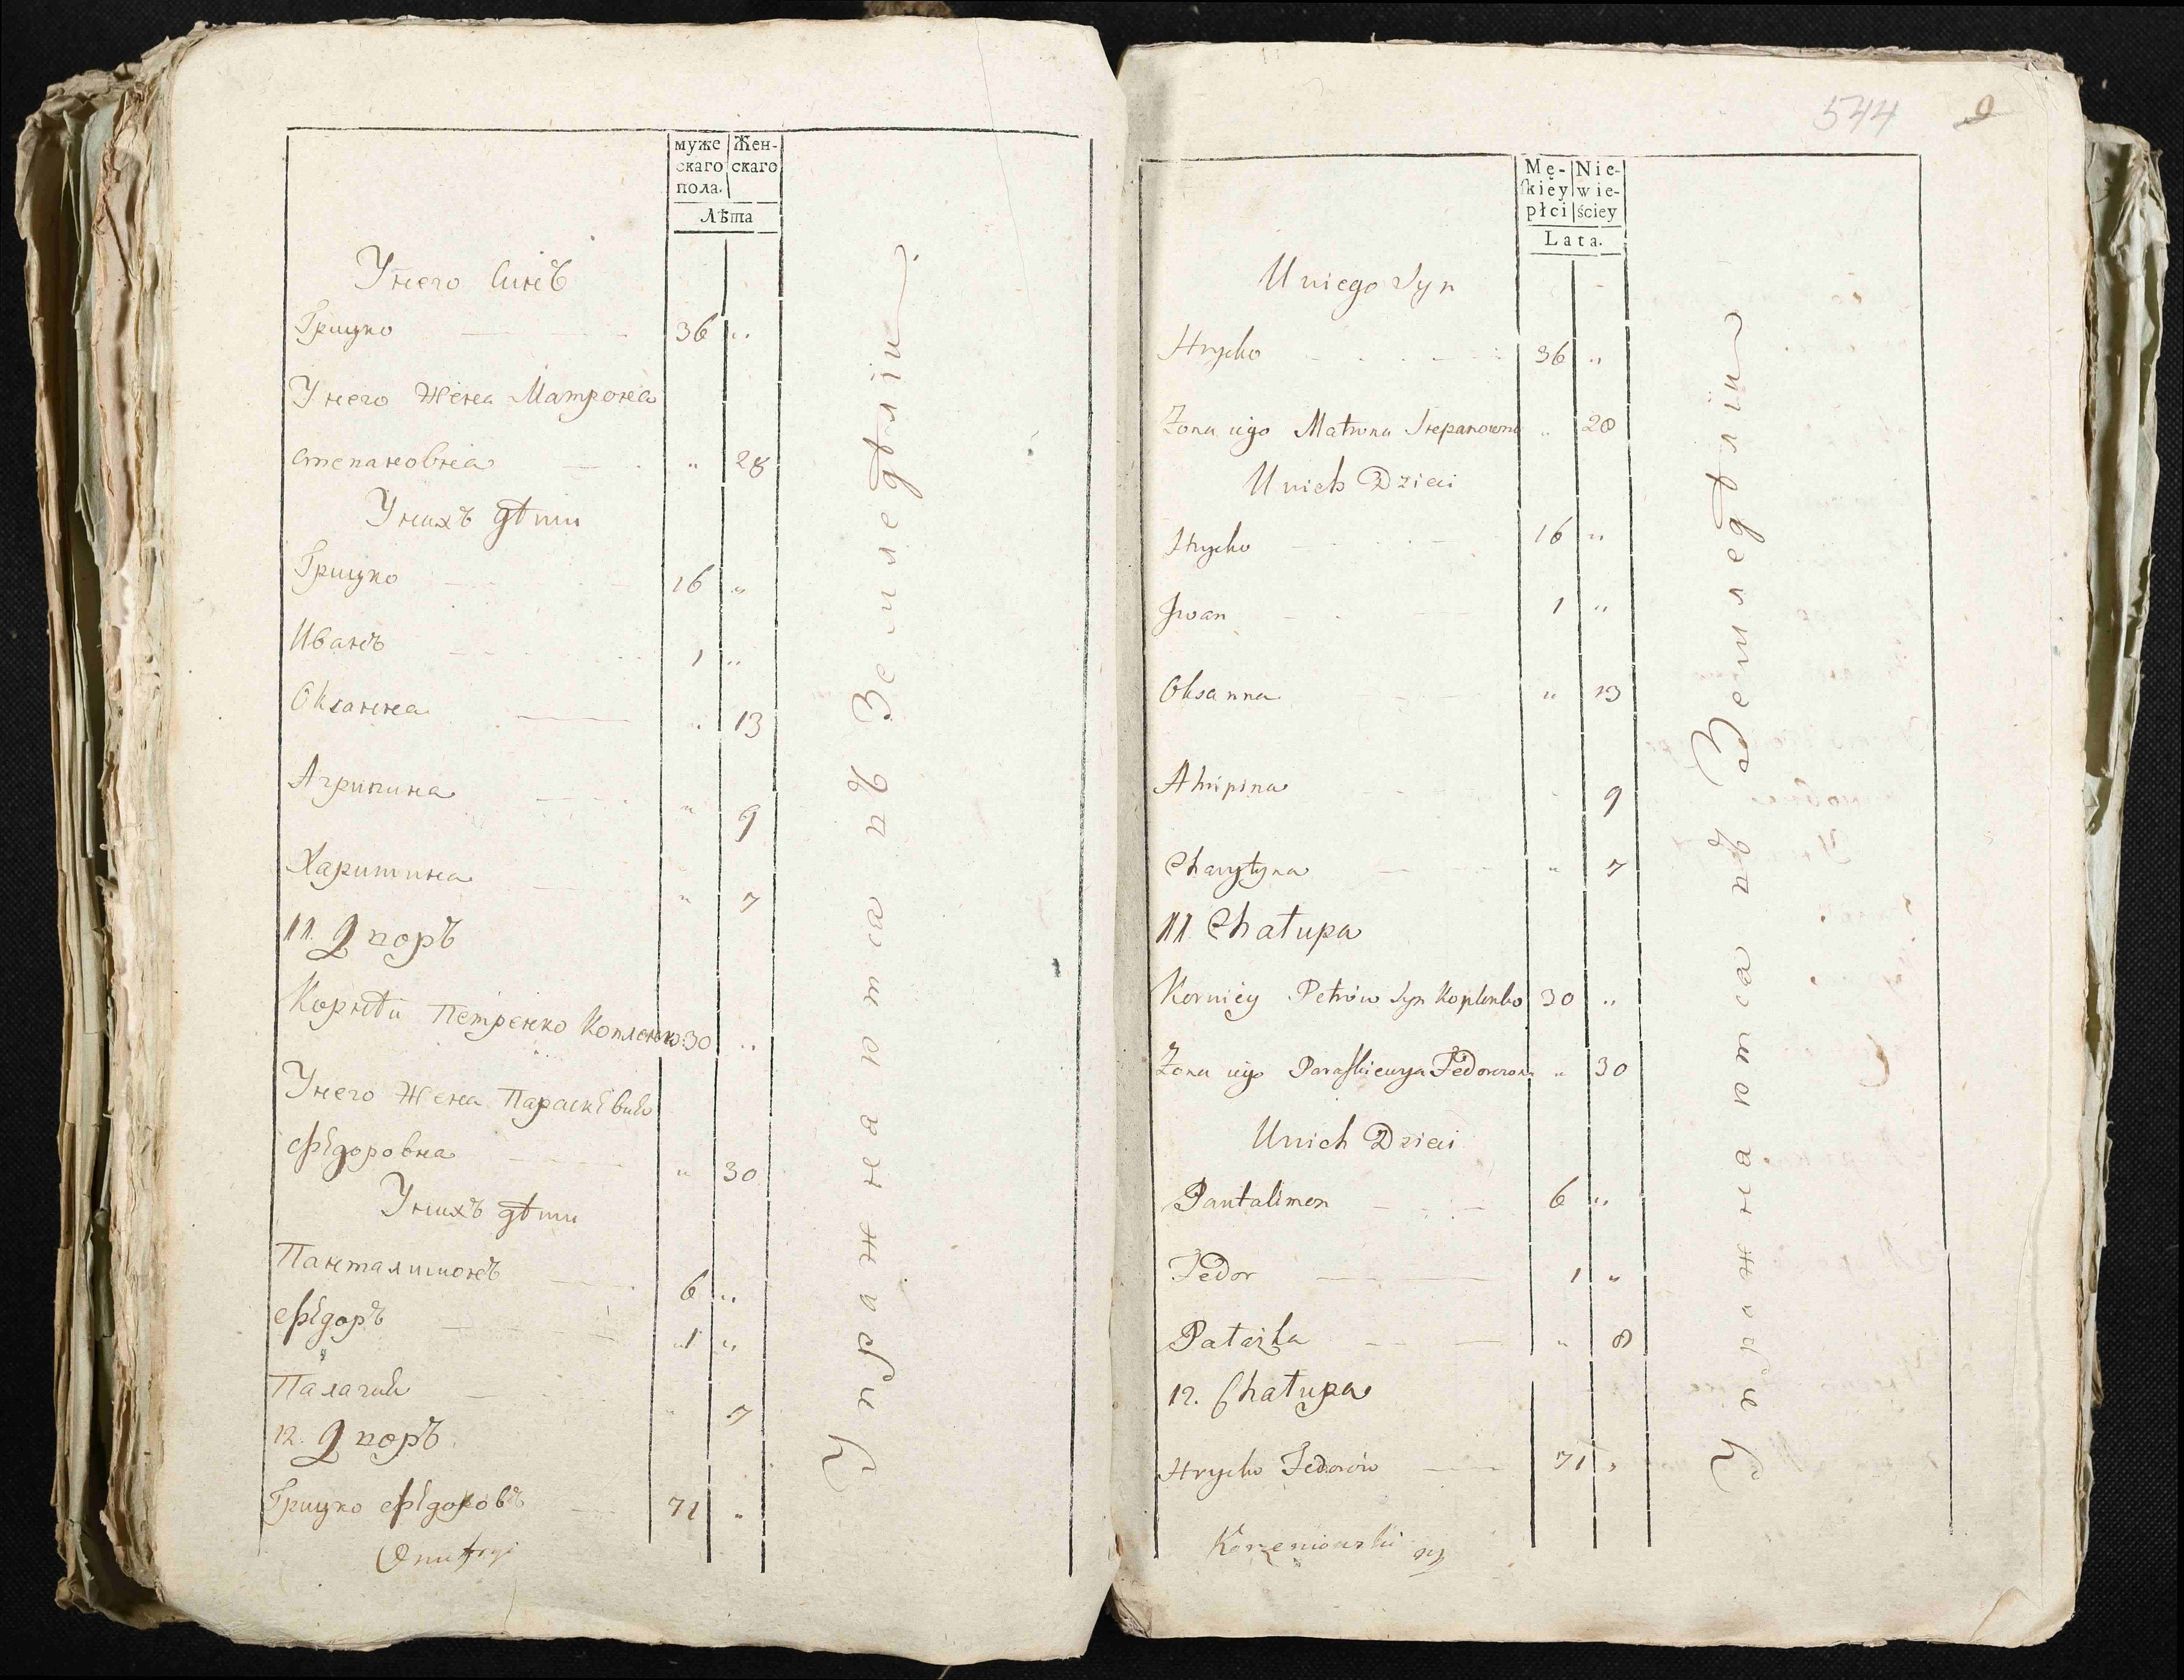 муже Жен-
скаго скаго
пола.
Лѣта
Унего Синъ
Грицко 36 "
Унего Жена Матрона
Степановна " 28
Унихъ дѣти
Грицко 16 "
Иванъ 1 "
Оксанна " 13
Агрипина " 9
Харитина " 7
11. Дворъ
Корнѣй Петренко Копленко 30 "
Унего Жена Параскевия
Федоровна " 30
Унихъ дѣти
Панталимонъ 6 "
Федоръ 1 "
Палагия " 7
12. Дворъ
Грицко Федоровъ 71 "
Упражнаютса въ Земледѣліи
544 9
Mę- Nie-
skiey wie-
płci ściey
Lata.
U niego Syn
Hrycko 36 "
Zona iego Matrona Stepanowna " 28
U nich Dzieci
Hrycko 16 "
Iwan 1 "
Oksanna " 13
Ahripina " 9
Charytyna " 7
11 Chałupa
Korniey Petrów Syn Koplenko 30 "
Zona iego Paraskiewya Fedorowna " 30
U nich Dzieci
Pantalimon 6 "
Fedor 1 "
Pałazka " 8
12. Chałupa
Hrycko Fedorów 71 "
Korzeniowski
Упражнаютса въ Земледѣліи